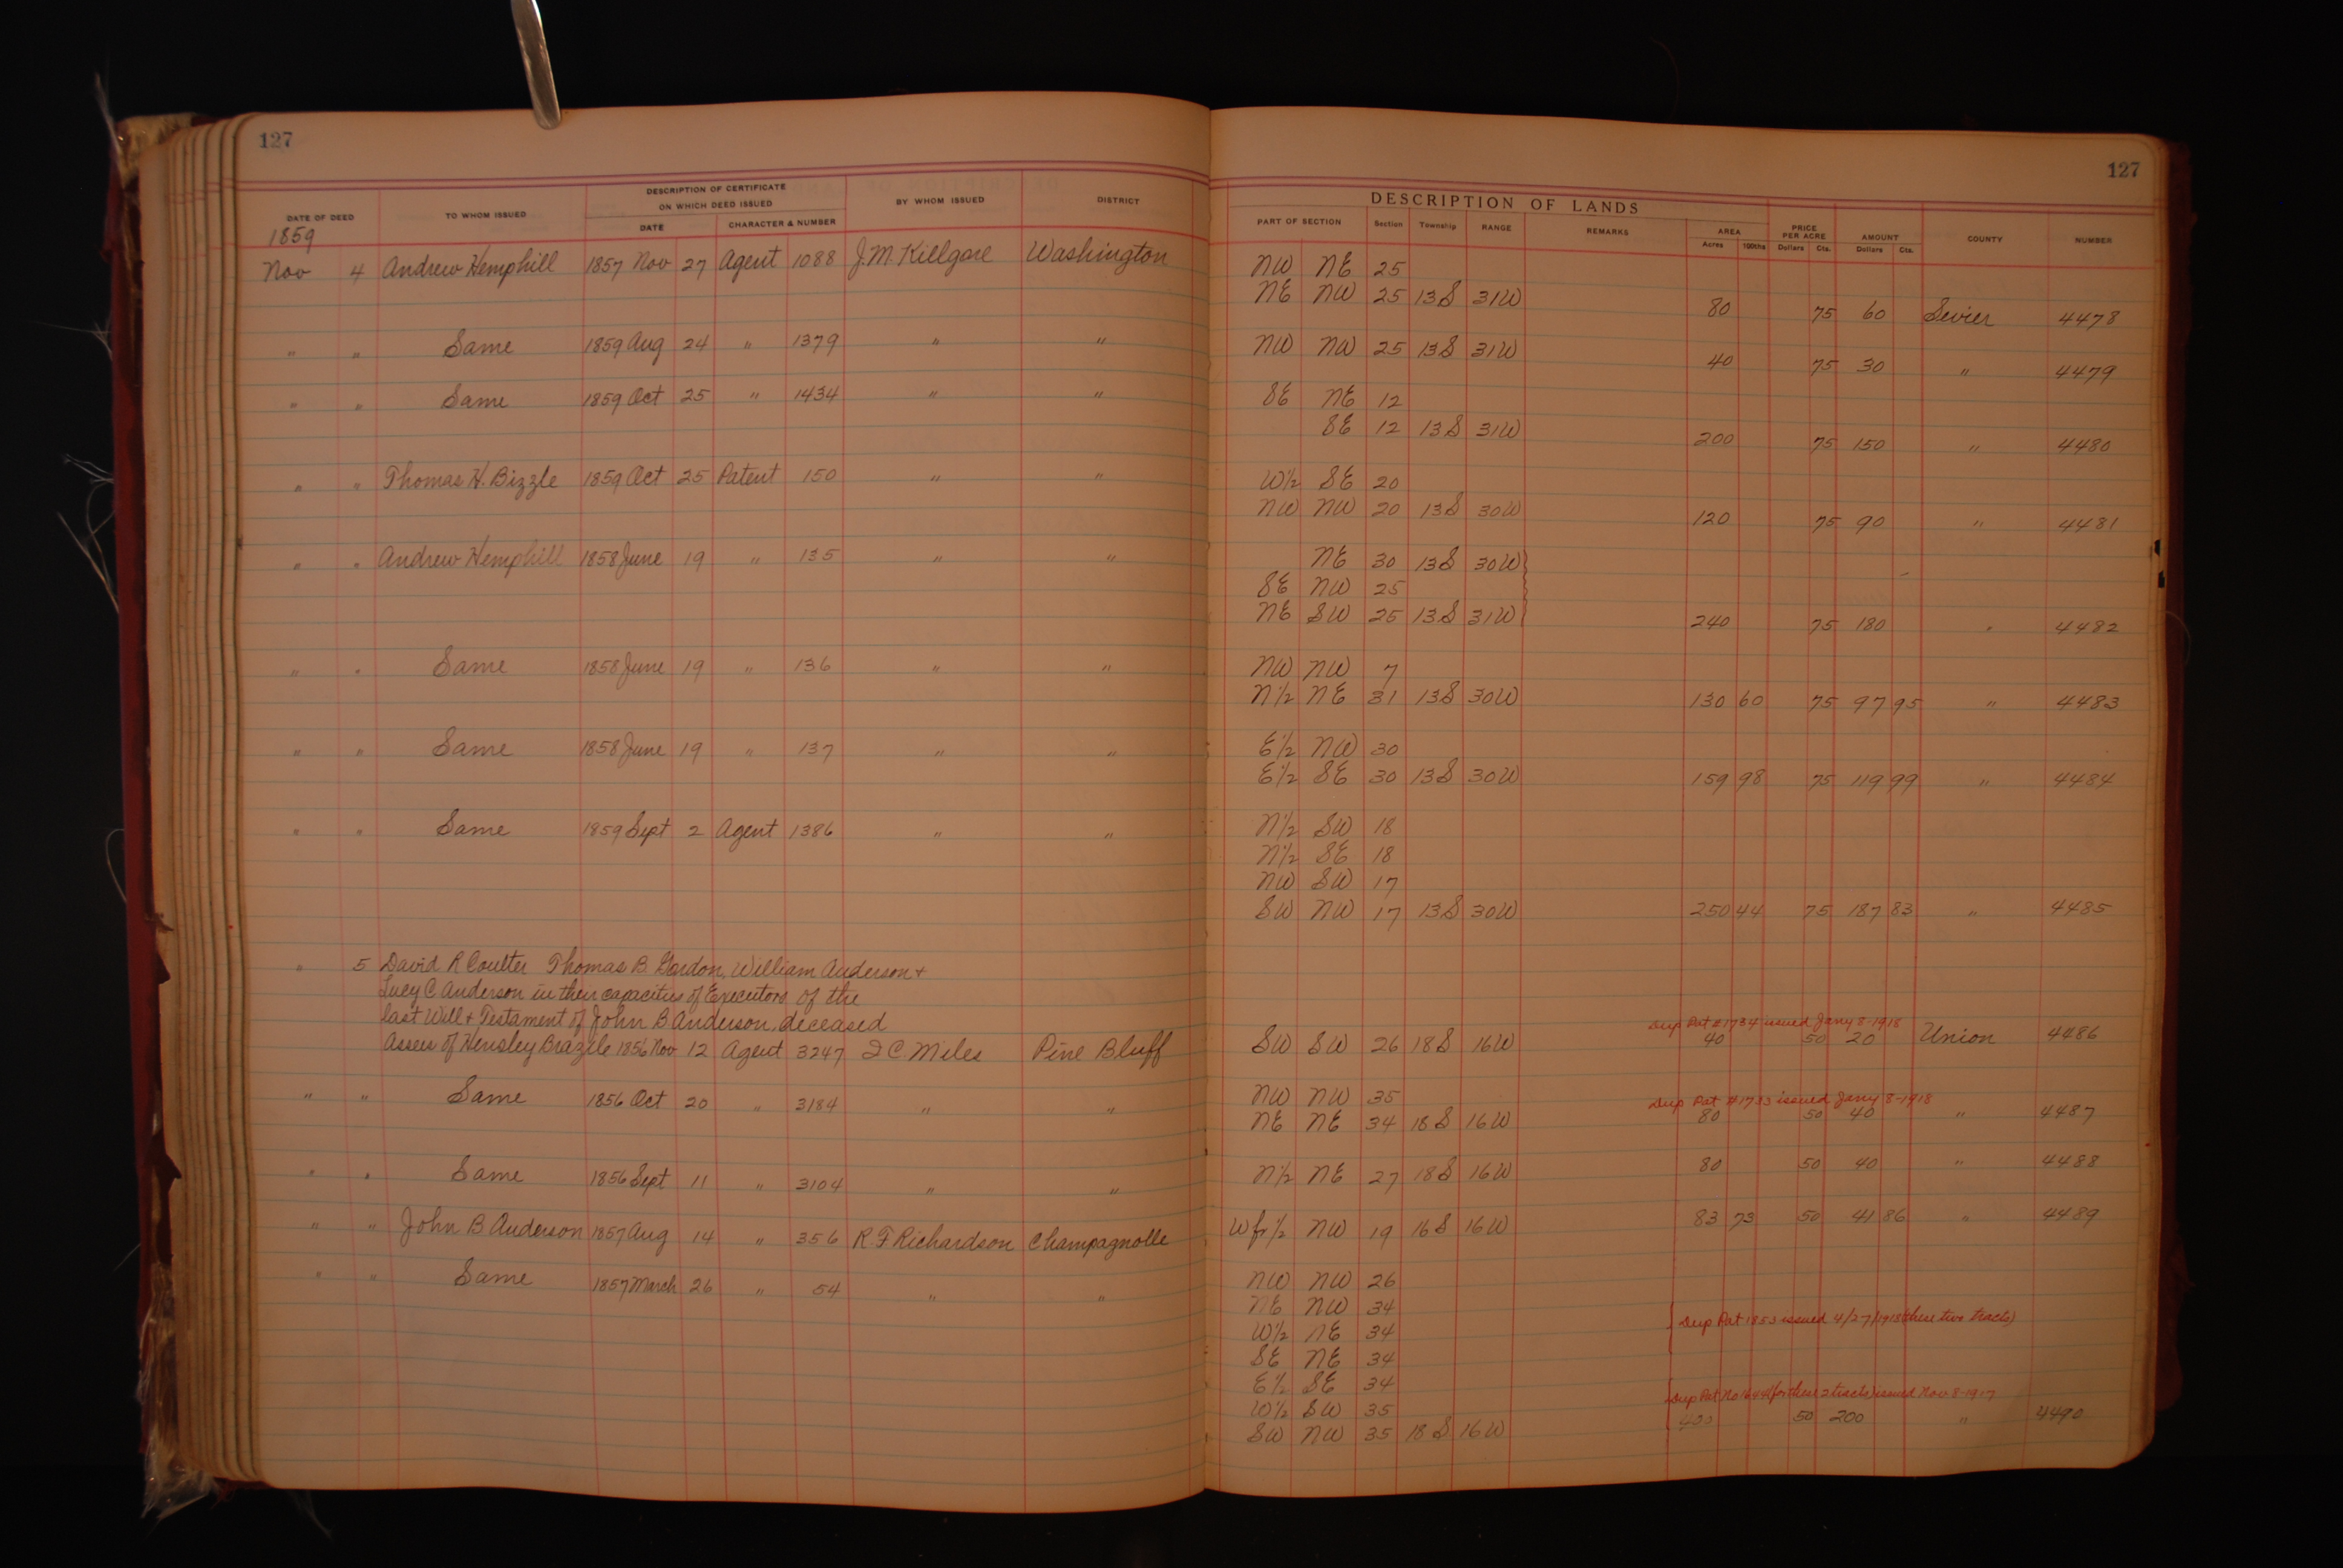 127
DATE OF DEED TO WHOM ISSUED DESCRIPTION OF CERTIFICATE ON WHICH DEED ISSUED DATE CHARACTER & NUMBER BY WHOM ISSUED DISTRICT
1859
Nov 4 Andrew Hemphill 1857 Nov 27 Agent 1088 J.M. Killgore Washington
" " Same 1859 Aug 24 " 1379 " "
" " Same 1859 Oct 25 " 1434 " "
" " Thomas H. Bizzle 1859 Oct 25 Patent 150 " "
" " Andrew Hemphill 1858 June 19 " 135 " "
" " Same 1858 June 19 " 136 " "
" " Same 1858 June 19 " 137 " "
" " Same 1859 Sept 2 Agent 1386 " "
" 5 David R Coulter Thomas B Gordon, William Anderson +
Lucy C Anderson in their capacities of Executors of the
last Will + Testament of John B Anderson, deceased
Assees of Hensley Brazile 1856 Nov 12 Agent 3247 I C. Miles Pine Bluff
" " Same 1856 Oct 20 " 3184 " "
" " Same 1856 Sept 11 " 3104 " "
" " John B Anderson 1857 Aug 14 " 356 R F Richardson Champagnolle
" " Same 1857 March 26 " 54 " "
127
DESCRIPTION OF LANDS
PART OF SECTION Section Township RANGE REMARKS AREA Acres 100ths PRICE PER ACRE Dollars Cts. AMOUNT Dollars Cts. COUNTY NUMBER
NW NE 25
NE NW 25 13S 31W 80 75 60 Sevier 4478
NW NW 25 13S 31W 40 75 30 " 4479
SE NE 12
SE 12 13S 31W 200 75 150 " 4480
W½ SE 20
NW NW 20 13S 30W 120 75 90 " 4481
NE 30 13S 30W
SE NW 25
NE SW 25 13S 31W 240 75 180 " 4482
NW NW 7
N½ NE 31 13S 30W 130 60 75 97 95 " 4483
E½ NW 30
E½ SE 30 13S 30W 159 98 75 119 99 " 4484
N½ SW 18
N½ SE 18
NW SW 17
SW NW 17 13S 30W 250 44 75 187 83 " 4485
Dup Pat #1734 issued Jany 8-1918
SW SW 26 18S 16W 40 50 20 Union 4486
NW NW 35
Dup Pat #1733 issued Jany 8-1918
NE NE 34 18S 16W 80 50 40 " 4487
N½ NE 27 18S 16W 80 50 40 " 4488
W fr ½ NW 19 16S 16W 83 73 50 41 86 " 4489
NW NW 26
NE NW 34
Dup Pat 1853 issued 4/27/1918 (these two tracts)
W½ NE 34
SE NE 34
E½ SE 34
Dup Pat No 1644 (for these 2 tracts) issued Nov. 8-1917
W½ SW 35
SW NW 35 18S 16W 400 50 200 " 4490